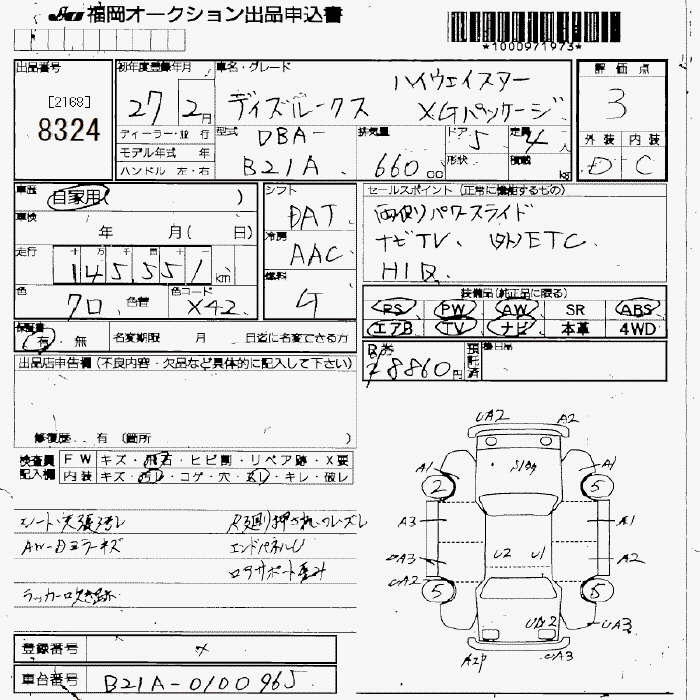 福岡オークション出品申込書
*1000971973*
出品番号
[2168]
8324
初年度登録年月
27 2月
車名・グレード
ハイウェイスター
デイズルークス XGパッケージ
評価点
3
外装 内装
D C
ディーラー・並行
モデル年式 年
ハンドル 左・右
型式
DBA-
B21A
排気量
660 cc
ドア 5
形状
定員 4人
積載 kg
車歴
自家用( )
車検
年 月( 日)
走行
十 万 千 百 十 一
145,551 km
色
70
色替
色コード
X42
シフト
DAT
冷房
AAC
燃料
G
セールスポイント(正常に機能するもの)
両側パワースライド
ナビTV、 ETC、
HID
装備品(純正品に限る)
PS PW AW SR ABS
エアB TV ナビ 本革 4WD
保証書
有 無
名変期限 月 日迄に名変できる方
R券
8860円
預託済
後日品
出品店申告欄(不良内容・欠品など具体的に記入して下さい)
修復歴 有 (箇所 )
検査員記入欄
FW キズ・飛石・ヒビ割・リペア跡・X要
内装 キズ・汚レ・コゲ・穴・スレ・キレ・破レ
シート・天張汚レ
AW-Dミラーキズ
エンドパネルU
ロアサポート歪み
ラッカー吹き跡
UA2 A2
A1 A1
2 5
A3 A1
A3 U2 U1 A2
UA2
5 5
UA2 UA3
A2P UA3
登録番号
車台番号 B21A-0100965